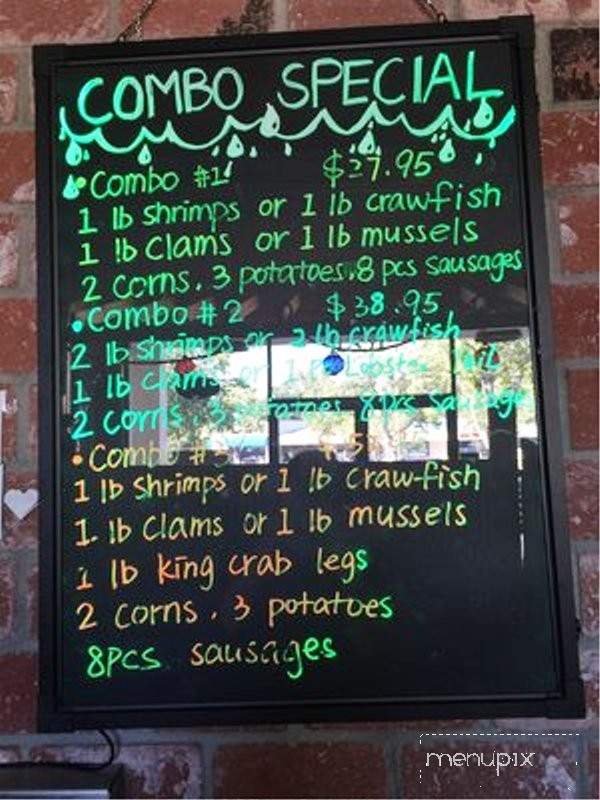 COMBO SPECIAL
• Combo #1 $27.95
1 lb shrimps or 1 lb crawfish
1 lb clams or 1 lb mussels
2 corns. 3 potatoes. 8 pcs sausages
• Combo #2 $38.95
2 lb shrimps or 2 lb crawfish
1 lb clams or 1 pc Lobster Tail
2 corns. 3 potatoes 8 pcs sausage
• Combo #3 $5
1 lb shrimps or 1 lb crawfish
1. lb clams or 1 lb mussels
1 lb king crab legs
2 corns. 3 potatoes
8pcs sausages
menupix